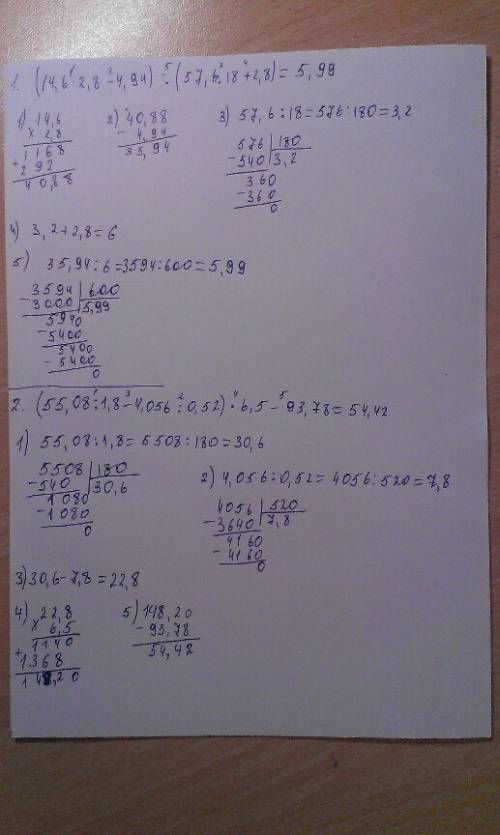 1. (14,6 · 2,8 - 4,94) : (57,6 : 18 + 2,8) = 5,99
1) 14,6
× 2,8
1168
+ 292
40,88
2) 40,88
- 4,94
35,94
3) 57,6 : 18 = 576 : 180 = 3,2
576 | 180
- 540 | 3,2
360
- 360
0
4) 3,2 + 2,8 = 6
5) 35,94 : 6 = 3594 : 600 = 5,99
3594 | 600
- 3000 | 5,99
5940
- 5400
5400
- 5400
0
2. (55,08 : 1,8 - 4,056 : 0,52) · 6,5 - 93,78 = 54,42
1) 55,08 : 1,8 = 5508 : 180 = 30,6
5508 | 180
- 540 | 30,6
1080
- 1080
0
2) 4,056 : 0,52 = 4056 : 520 = 7,8
4056 | 520
- 3640 | 7,8
4160
- 4160
0
3) 30,6 - 7,8 = 22,8
4) 22,8
× 6,5
1140
+ 1368
148,20
5) 148,20
- 93,78
54,42